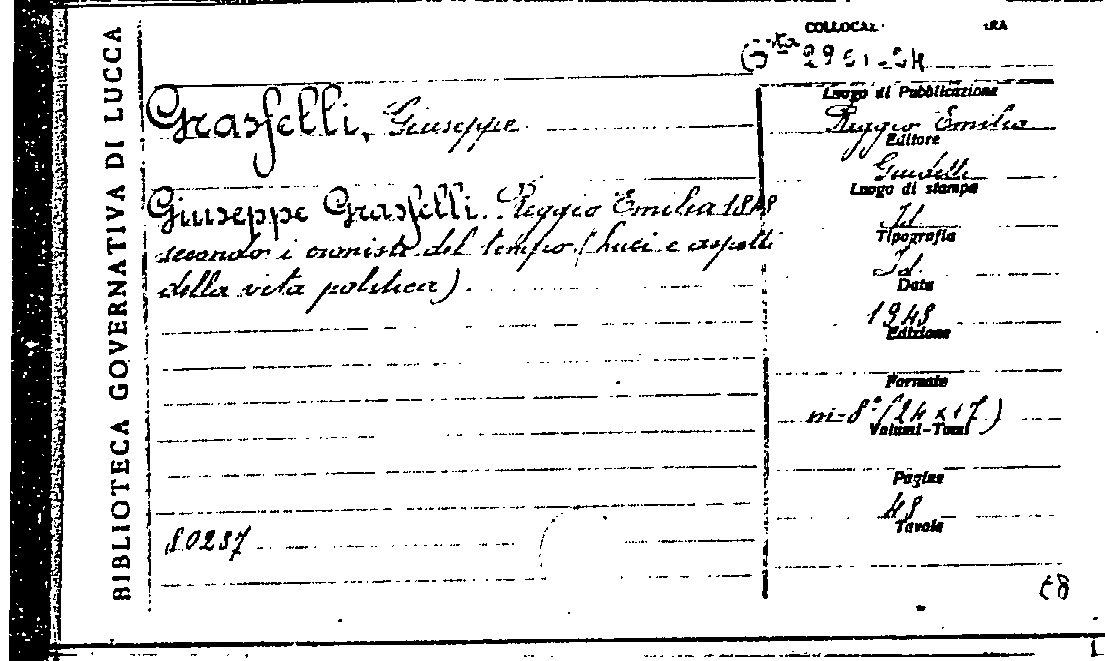 BIBLIOTECA GOVERNATIVA DI LUCCA
COLLOCAZ
Grasfelli, Giuseppe
Giuseppe Grasfelli. Reggio Emilia 1848
secondo i cronisti del tempo (luci e aspetti
della vita politica).
80237
Luogo di Pubblicazione
Reggio Emilia
Editore
Luogo di stampa
Id
Tipografia
Id.
Data
1948
Edizione
Formato
in-8° (24 x 17)
Volumi-Tomi
Pagine
48
Tavole